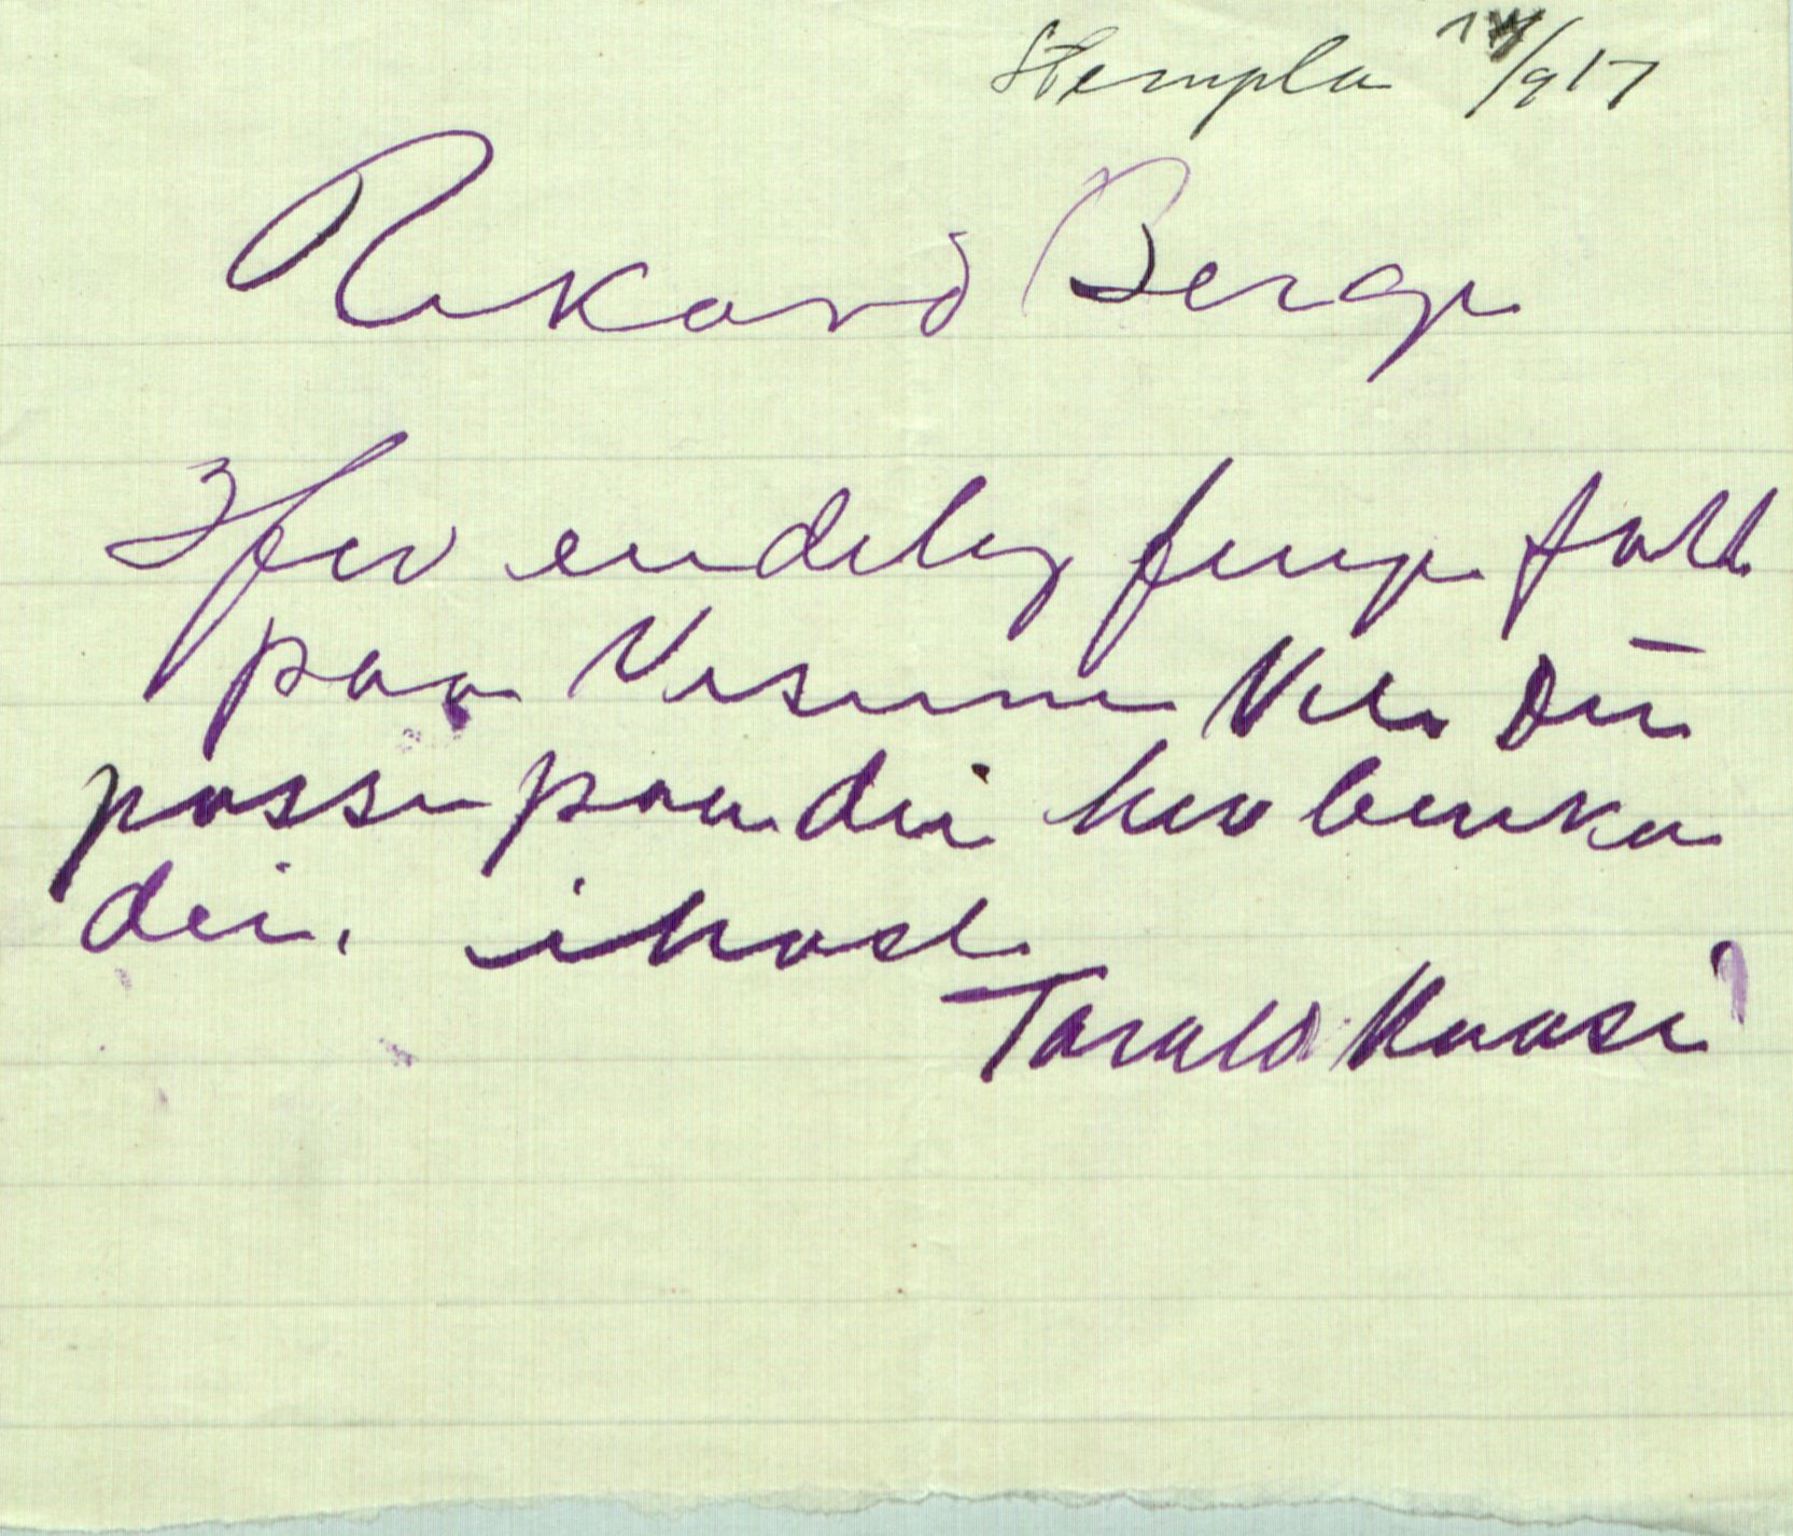 Stempla 14/9 17
Rikard Berge
Hev endeleg fenge tatt
paa Visunne Vil Du
passe paa dei hev benka
dei. i hast
Tarald Kaasi